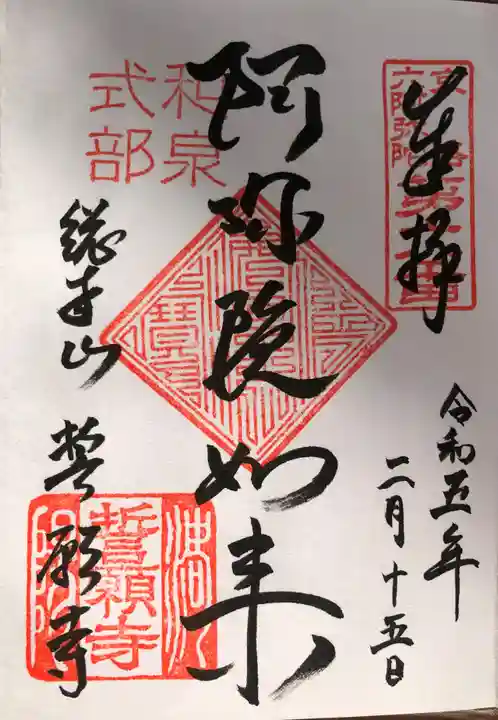 奉拝
令和五年
二月十五日
阿弥陀如来
総本山 誓願寺
和泉
式部
京
六阿弥陀
誓願寺